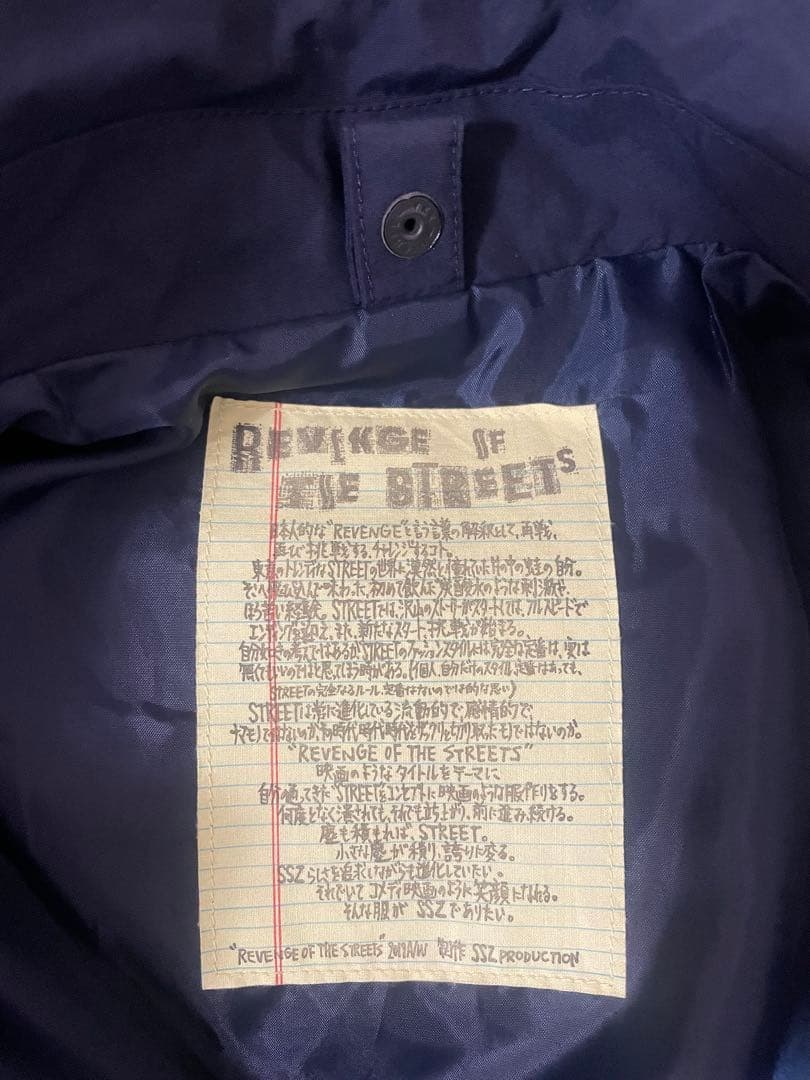 REVENGE OF
THE STREETS
日本人的な"REVENGE"と言う言葉の解釈として、再戦、
再び挑戦する、チャレンジするコト。
東京のトレンディなSTREETの世界に漠然と憧れていた井の中の蛙の自分。
そこへ飛び込んで味わった、初めて飲んだ炭酸水のような刺激や、
ほろ苦い経験。STREETでは、沢山のストーリーがスタートしては、フルスピードで
エンディングを迎えて、また、新たなスタート、挑戦が始まる。
自分なりの考えではあるがSTREETのファッションスタイルには完全な定番は、実は
無くてもいいのではと思ってしまう時がある。(個人、自分だけのスタイル、定番はあっても、
STREETの完全なるルール、定番はないのでは的な思い)
STREETは常に進化している流動的で、感情的で、
ナマモノではないのか、その時代、時代をザックリと切り取ったモノではないのか。
"REVENGE OF THE STREETS"
映画のようなタイトルをテーマに
自分の通ってきた"STREET"をコンセプトに映画のような服作りをする。
何度となく潰されても、それでも立ち上がり、前に進み、続ける。
塵も積もれば、STREET。
小さな塵が積り、誇りに変る。
SSZらしさを追求しながらも進化していたい。
それでいてコメディ映画のように笑顔になれる。
そんな服がSSZでありたい。
"REVENGE OF THE STREETS" A/W 制作 SSZ PRODUCTION